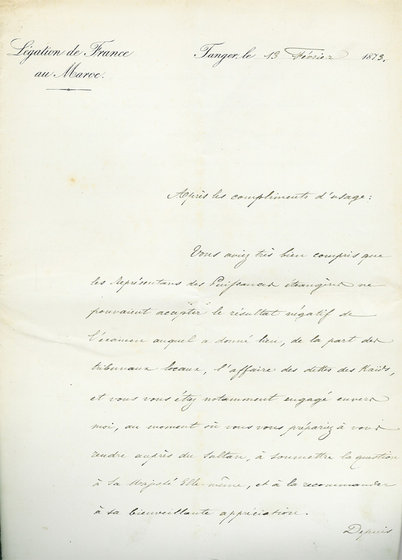 Légation de France
au Maroc.
Tanger, le 13 Février 1873.
Après les compliments d'usage:
Vous aviez très bien compris que
les Représentans des Puissances étrangères ne
pouvaient accepter le résultat négatif de
l'examen auquel a donné lieu, de la part des
tribunaux locaux, l'affaire des dettes des Kaïds,
et vous vous étiez notamment engagé envers
moi, au moment où vous vous prépariez à vous
rendre auprès du Sultan, à soumettre la question
à Sa Majesté Elle-même, et à la recommander
à sa bienveillante appréciation.
Depuis